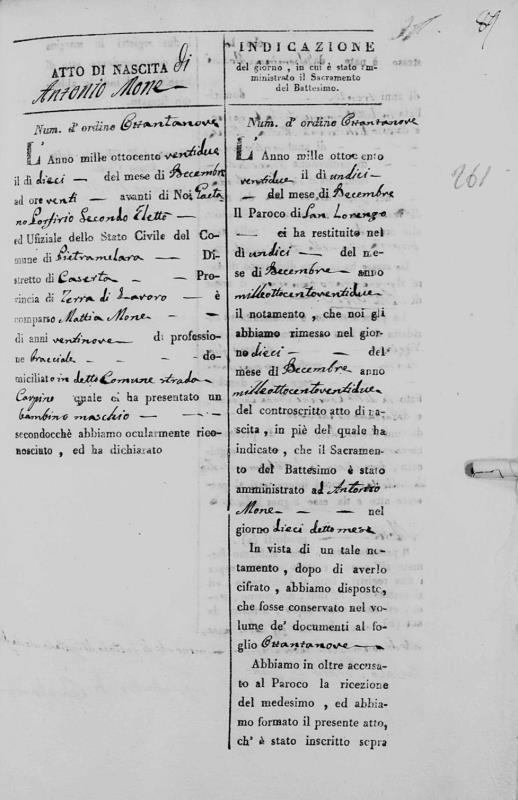 89
ATTO DI NASCITA di
Antonio Mone
Num. d' ordine Ottantanove
L' Anno mille ottocento ventidue
il dì dieci del mese di Decembre
ad ore venti avanti di Noi Gaeta
no Porfirio Secondo Eletto
ed Ufiziale dello Stato Civile del Co-
mune di Pietramelara Di-
stretto di Caserta Pro-
vincia di Terra di Lavoro è
comparso Mattia Mone
di anni ventinove di professio-
ne bracciale do-
miciliato in detto Comune strada
Carpino quale ci ha presentato un
bambino maschio
secondocchè abbiamo ocularmente rico-
nosciuto , ed ha dichiarato
INDICAZIONE
del giorno , in cui è stato am-
ministrato il Sacramento
del Battesimo.
Num. d' ordine Ottantanove
L' Anno mille ottocento
ventidue il dì undici
del mese di Decembre
Il Paroco di San Lorenzo
ci ha restituito nel
dì undici del me-
se di Decembre anno
milleottocentoventidue
il notamento , che noi gli
abbiamo rimesso nel gior-
no dieci del
mese di Decembre anno
milleottocentoventidue
del controscritto atto di na-
scita , in piè del quale ha
indicato , che il Sacramen-
to del Battesimo è stato
amministrato ad Antonio
Mone nel
giorno dieci detto mese
In vista di un tale no-
tamento , dopo di averlo
cifrato , abbiamo disposto,
che fosse conservato nel vo-
lume de' documenti al fo-
glio Ottantanove
Abbiamo in oltre accusa-
to al Paroco la ricezione
del medesimo , ed abbia-
mo formato il presente atto,
ch' è stato inscritto sopra
261